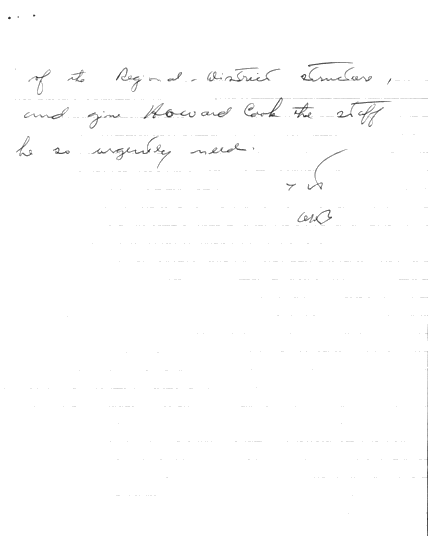 of its Regional-District structure,
and give Howard Cook the staff
he so urgently need.